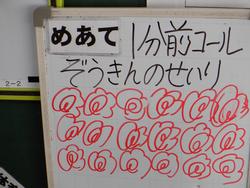 めあて
1分前コール
ぞうきんのせいり
2-2